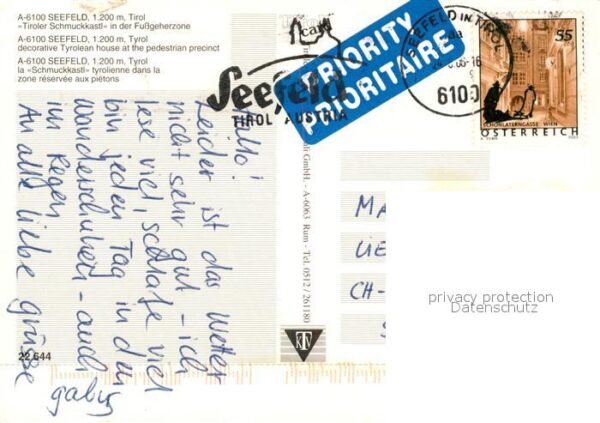 A-6100 SEEFELD, 1.200 m, Tirol
»Tiroler Schmuckkastl« in der Fußgeherzone
A-6100 SEEFELD, 1.200 m, Tyrol
decorative Tyrolean house at the pedestrian precinct
A-6100 SEEFELD, 1.200 m, Tyrol
la «Schmuckkastl» tyrolienne dans la
zone réservée aux piétons
Seefeld
TIROL AUSTRIA
PRIORITY
PRIORITAIRE
SEEFELD IN TIROL
6100
55
SCHÖNLATERNGASSE WIEN
ÖSTERREICH
Hallo!
Leider ist das Wetter
nicht sehr gut - ich
lese viel, schlafe viel
bin jeden Tag in den
Wanderschuhen - auch
im Regen
An alle liebe Grüsse
gaby
GmbH. - A-6063 Rum - Tel. 0512 / 261180
KTV
22 644
MA
UE
CH-
privacy protection
Datenschutz